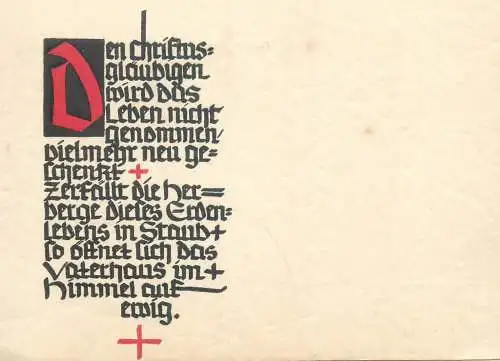 Den Christus-
gläubigen
wird das
Leben nicht
genommen,
vielmehr neu ge-
schenkt +
Zerfällt die Her-
berge dieses Erden-
lebens in Staub+
so öffnet sich das
Vaterhaus im+
Himmel auf
ewig.
+